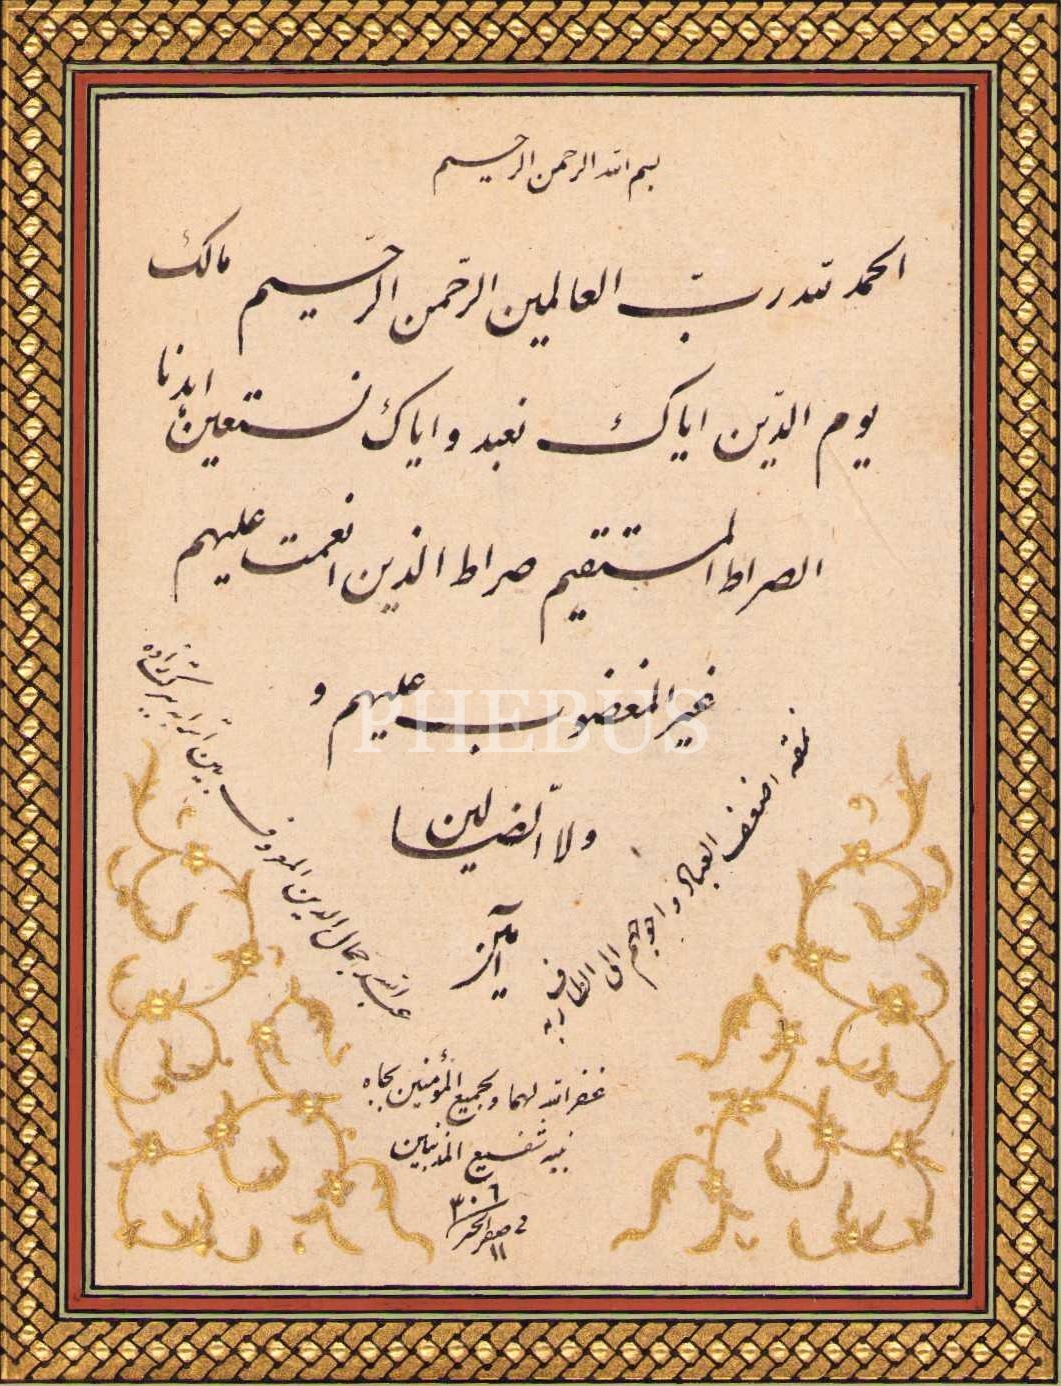 بسم الله الرحمن الرحيم
الحمد لله رب العالمين الرحمن الرحيم مالك
يوم الدين اياك نعبد واياك نستعين اهدنا
الصراط المستقيم صراط الذين انعمت عليهم
غير المغضوب عليهم و
ولا الضالين
آمين
نمقه اضعف العباد واحوجهم الى الطاف ربه
السيد جمال الدين المعروف بين
غفر الله لهما ولجميع المؤمنين بجاه
نبيه شفيع المذنبين
في ١١ صفر الخير ٣٠٦
PHEBUS